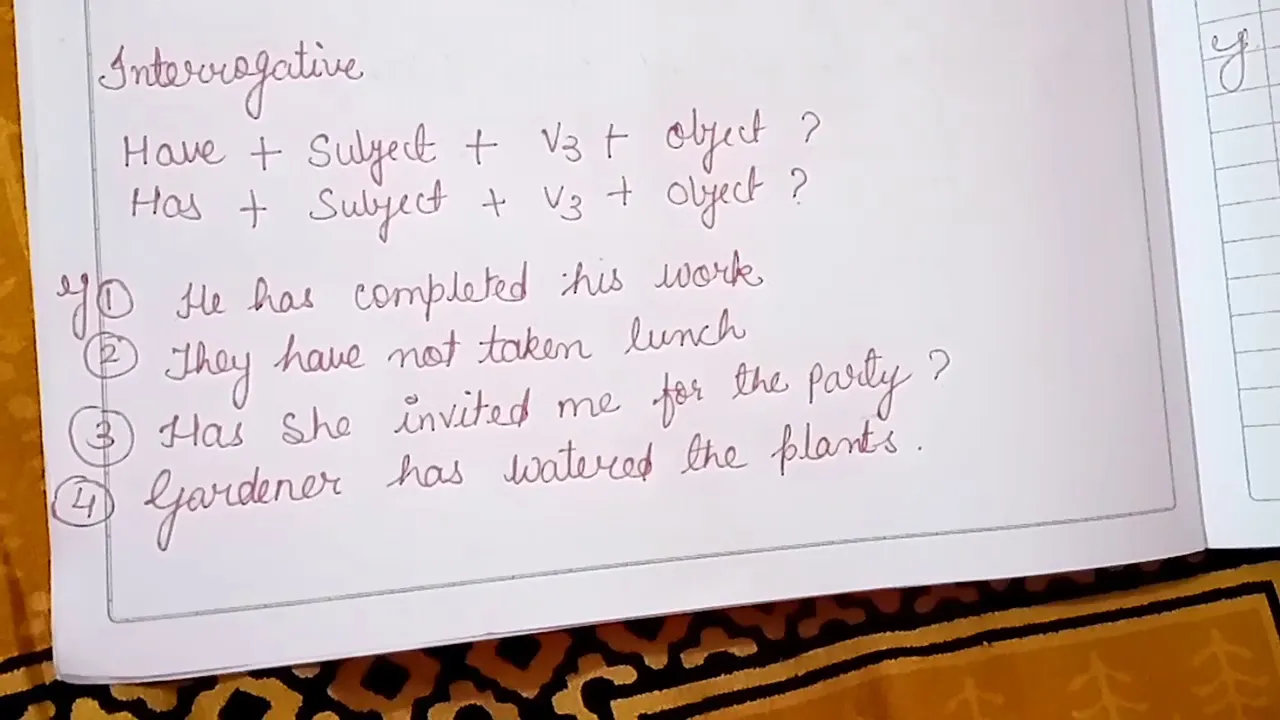 Interrogative
Have + Subject + V3 + object ?
Has + Subject + V3 + Object ?
eg ① He has completed his work
② They have not taken lunch
③ Has she invited me for the party ?
④ Gardener has watered the plants.
eg